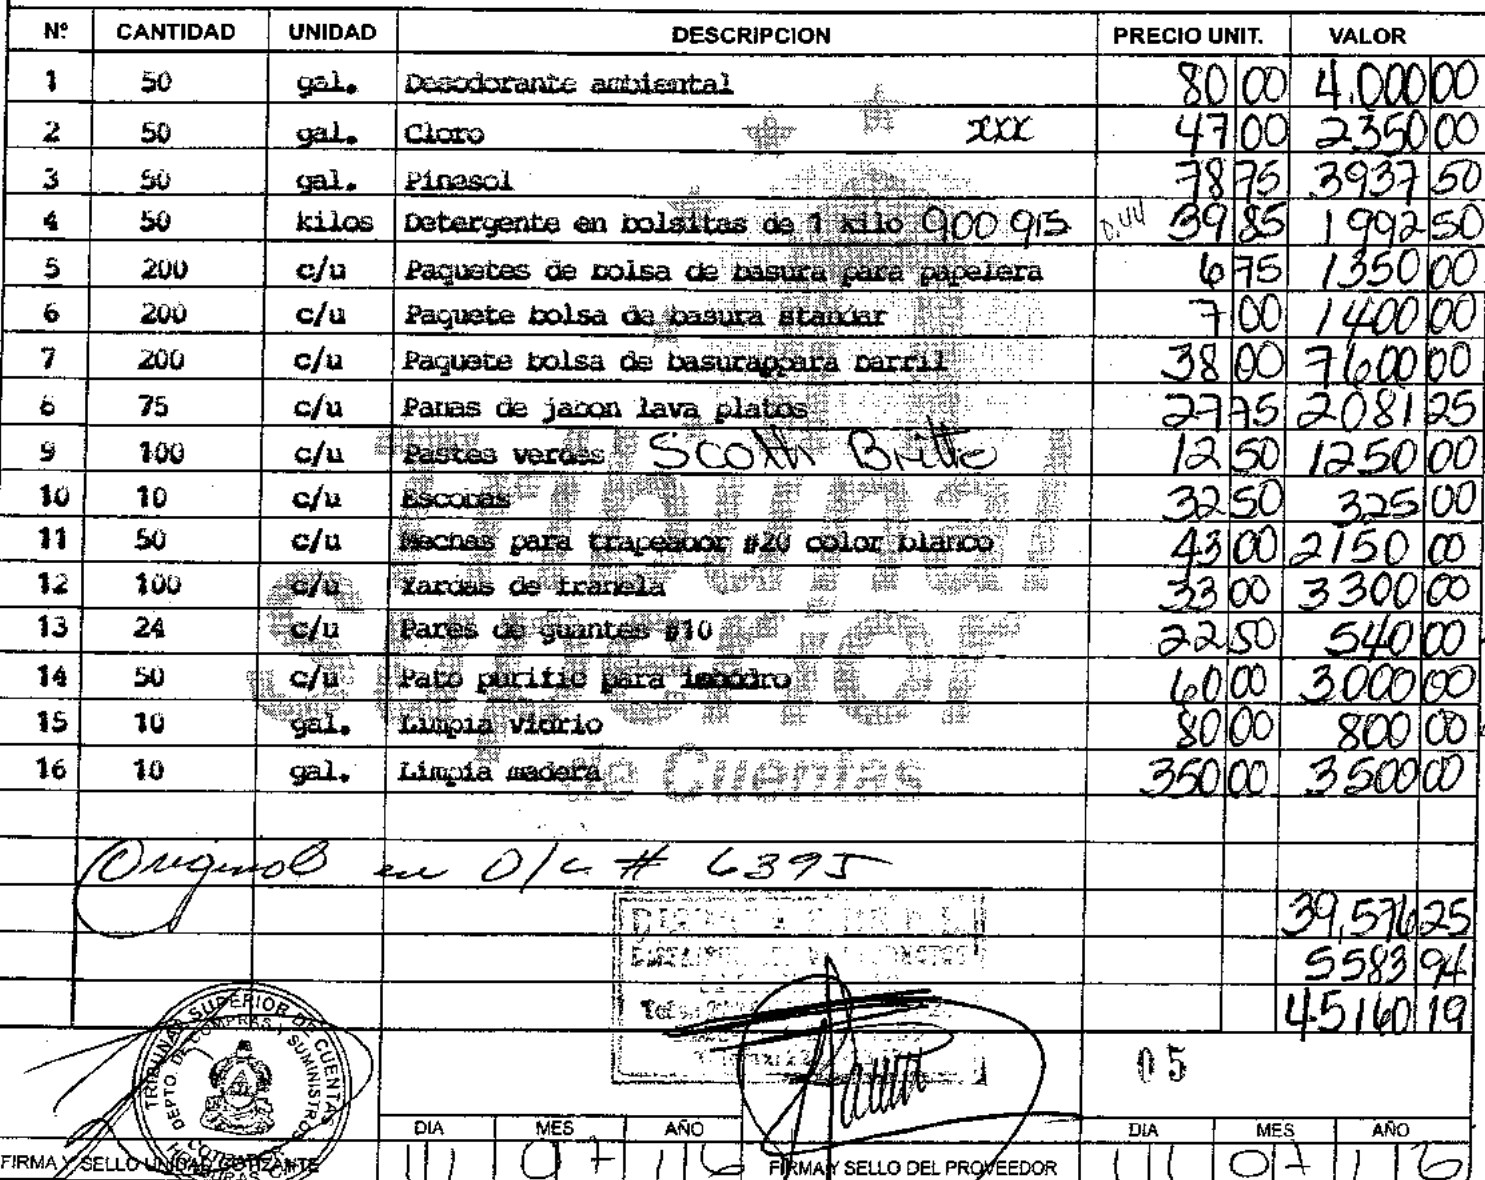 Nº CANTIDAD UNIDAD DESCRIPCION PRECIO UNIT. VALOR
1 50 gal. Desodorante ambiental 80 00 4.000 00
2 50 gal. Cloro xxx 47 00 2350 00
3 50 gal. Pinesol 78 75 3937 50
4 50 kilos Detergente en bolsitas de 1 kilo 900 915 0.44 39 85 1992 50
5 200 c/u Paquetes de bolsa de basura para papelera 6 75 1350 00
6 200 c/u Paquete bolsa de basura standar 7 00 1400 00
7 200 c/u Paquete bolsa de basurappara barril 38 00 7600 00
8 75 c/u Panas de jabon lava platos 27 75 2081 25
9 100 c/u Pastes verdes Scoth Britte 12 50 1250 00
10 10 c/u Escobas 32 50 325 00
11 50 c/u Mechas para trapeador #20 color blanco 43 00 2150 00
12 100 c/u Yardas de franela 33 00 3300 00
13 24 c/u Pares de guantes #10 22 50 540 00
14 50 c/u Pato purific para inodoro 60 00 3000 00
15 10 gal. Limpia vidrio 80 00 800 00
16 10 gal. Limpia madera 350 00 3500 00
Tribunal
Superior
de Cuentas
Original en O/C # 6395
39,576 25
5583 94
45160 19
TRIBUNAL SUPERIOR DE CUENTAS
DEPTO. DE COMPRAS Y SUMINISTROS
COTIZADOR
05
DIA MES AÑO DIA MES AÑO
FIRMA Y SELLO UNIDAD COTIZANTE 11 07 16 FIRMA Y SELLO DEL PROVEEDOR 11 07 16